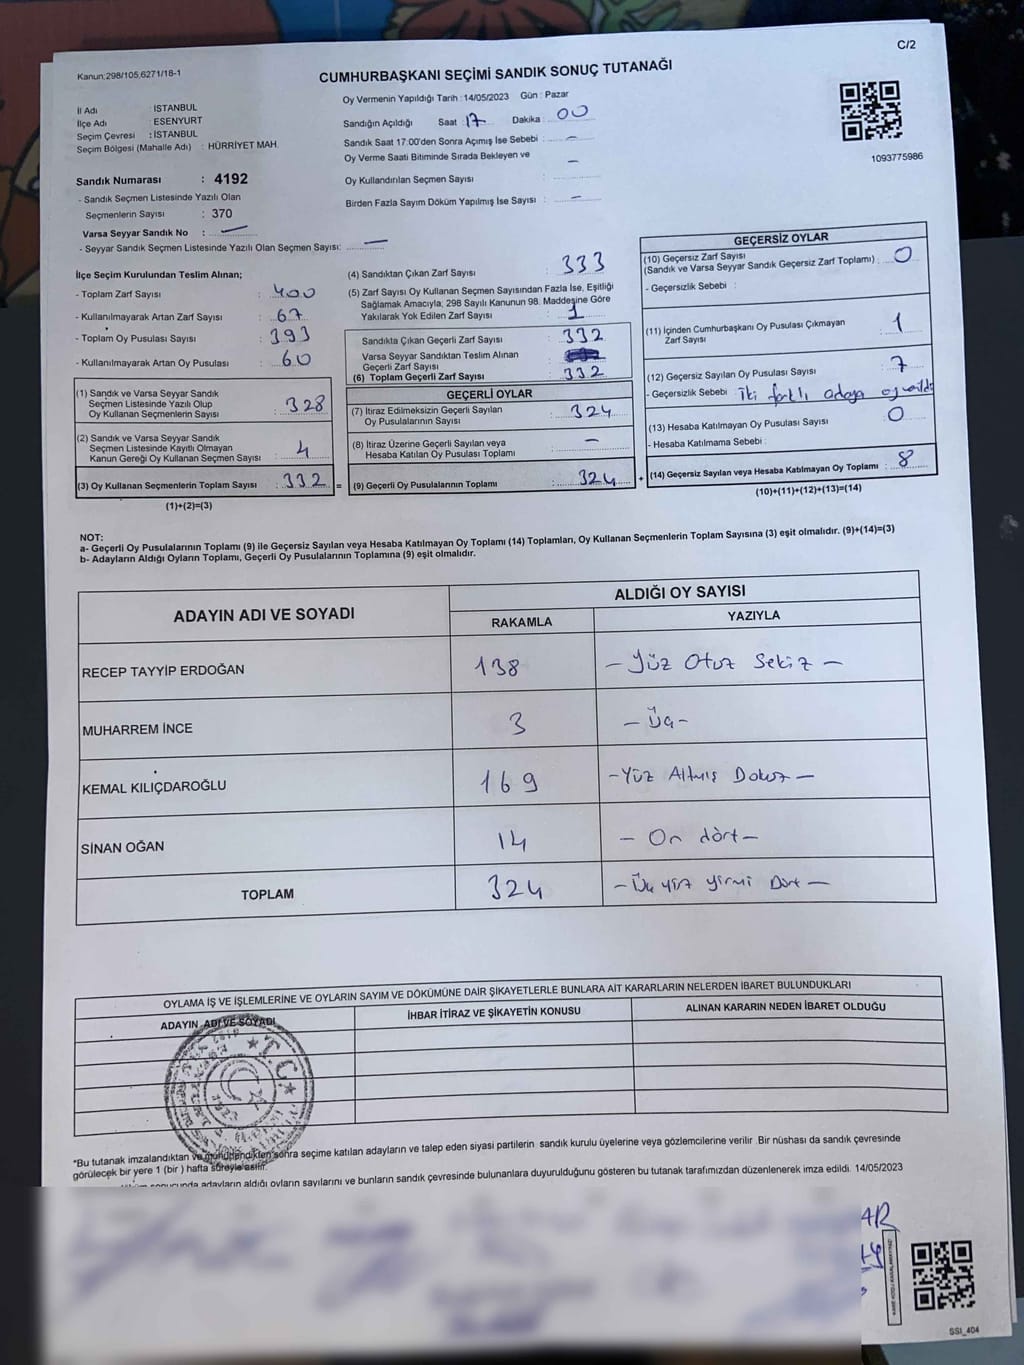 C/2
Kanun;298/105,6271/18-1
CUMHURBAŞKANI SEÇİMİ SANDIK SONUÇ TUTANAĞI
İl Adı : İSTANBUL
İlçe Adı : ESENYURT
Seçim Çevresi : İSTANBUL
Seçim Bölgesi (Mahalle Adı) : HÜRRİYET MAH.
Oy Vermenin Yapıldığı Tarih : 14/05/2023 Gün : Pazar
Sandığın Açıldığı Saat 17 Dakika : 00
Sandık Saat 17:00'den Sonra Açımış İse Sebebi : —
Oy Verme Saati Bitiminde Sırada Bekleyen ve
Oy Kullandırılan Seçmen Sayısı : —
Birden Fazla Sayım Döküm Yapılmış İse Sayısı : —
1093775986
Sandık Numarası : 4192
- Sandık Seçmen Listesinde Yazılı Olan
Seçmenlerin Sayısı : 370
Varsa Seyyar Sandık No : —
- Seyyar Sandık Seçmen Listesinde Yazılı Olan Seçmen Sayısı: —
İlçe Seçim Kurulundan Teslim Alınan;
- Toplam Zarf Sayısı : 400
- Kullanılmayarak Artan Zarf Sayısı : 67
- Toplam Oy Pusulası Sayısı : 393
- Kullanılmayarak Artan Oy Pusulası : 60
(1) Sandık ve Varsa Seyyar Sandık
Seçmen Listesinde Yazılı Olup
Oy Kullanan Seçmenlerin Sayısı : 328
(2) Sandık ve Varsa Seyyar Sandık
Seçmen Listesinde Kayıtlı Olmayan
Kanun Gereği Oy Kullanan Seçmen Sayısı : 4
(3) Oy Kullanan Seçmenlerin Toplam Sayısı : 332 =
(1)+(2)=(3)
(4) Sandıktan Çıkan Zarf Sayısı : 333
(5) Zarf Sayısı Oy Kullanan Seçmen Sayısından Fazla İse, Eşitliği
Sağlamak Amacıyla; 298 Sayılı Kanunun 98. Maddesine Göre
Yakılarak Yok Edilen Zarf Sayısı : 1
Sandıkta Çıkan Geçerli Zarf Sayısı : 332
Varsa Seyyar Sandıktan Teslim Alınan
Geçerli Zarf Sayısı :
(6) Toplam Geçerli Zarf Sayısı : 332
GEÇERLİ OYLAR
(7) İtiraz Edilmeksizin Geçerli Sayılan
Oy Pusulalarının Sayısı : 324
(8) İtiraz Üzerine Geçerli Sayılan veya
Hesaba Katılan Oy Pusulası Toplamı : —
(9) Geçerli Oy Pusulalarının Toplamı : 324 +
GEÇERSİZ OYLAR
(10) Geçersiz Zarf Sayısı
(Sandık ve Varsa Seyyar Sandık Geçersiz Zarf Toplamı) : 0
- Geçersizlik Sebebi :
(11) İçinden Cumhurbaşkanı Oy Pusulası Çıkmayan
Zarf Sayısı : 1
(12) Geçersiz Sayılan Oy Pusulası Sayısı : 7
- Geçersizlik Sebebi İki farklı adaya oy verildi
(13) Hesaba Katılmayan Oy Pusulası Sayısı : 0
- Hesaba Katılmama Sebebi :
(14) Geçersiz Sayılan veya Hesaba Katılmayan Oy Toplamı : 8
(10)+(11)+(12)+(13)=(14)
NOT:
a- Geçerli Oy Pusulalarının Toplamı (9) ile Geçersiz Sayılan veya Hesaba Katılmayan Oy Toplamı (14) Toplamları, Oy Kullanan Seçmenlerin Toplam Sayısına (3) eşit olmalıdır. (9)+(14)=(3)
b- Adayların Aldığı Oyların Toplamı, Geçerli Oy Pusulalarının Toplamına (9) eşit olmalıdır.
ADAYIN ADI VE SOYADI
ALDIĞI OY SAYISI
RAKAMLA YAZIYLA
RECEP TAYYİP ERDOĞAN 138 — Yüz Otuz Sekiz —
MUHARREM İNCE 3 — Üç —
KEMAL KILIÇDAROĞLU 169 — Yüz Altmış Dokuz —
SİNAN OĞAN 14 — On dört —
TOPLAM 324 — Üç yüz yirmi Dört —
OYLAMA İŞ VE İŞLEMLERİNE VE OYLARIN SAYIM VE DÖKÜMÜNE DAİR ŞİKAYETLERLE BUNLARA AİT KARARLARIN NELERDEN İBARET BULUNDUKLARI
ADAYIN ADI VE SOYADI İHBAR İTİRAZ VE ŞİKAYETİN KONUSU ALINAN KARARIN NEDEN İBARET OLDUĞU
T.C.
*Bu tutanak imzalandıktan ve mühürlendikten sonra seçime katılan adayların ve talep eden siyasi partilerin sandık kurulu üyelerine veya gözlemcilerine verilir .Bir nüshası da sandık çevresinde
görülecek bir yere 1 (bir ) hafta süreyle asılır.
sonucunda adayların aldığı oyların sayılarını ve bunların sandık çevresinde bulunanlara duyurulduğunu gösteren bu tutanak tarafımızdan düzenlenerek imza edildi. 14/05/2023
SSI_404